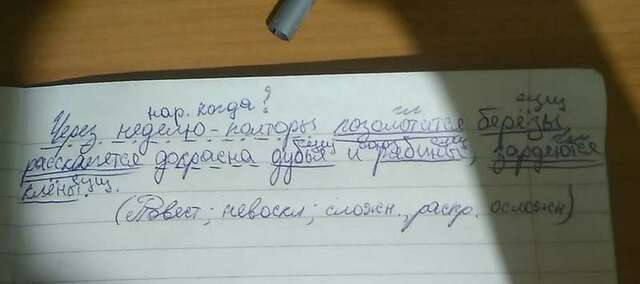 нар. когда?
гл. сущ
Через неделю-полторы позолотятся берёзы
сущ сущ гл
раскалятся докрасна дубья и рябины, зардеются
сущ
клёны.
(Повест; невоскл; сложн., распр. осложн)